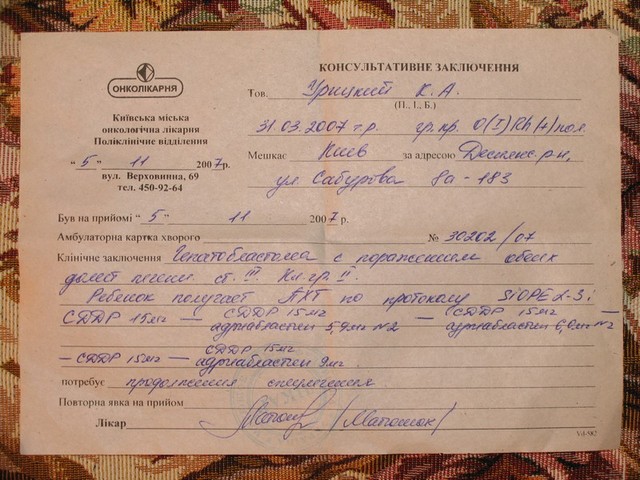 ОНКОЛІКАРНЯ
Київська міська
онкологічна лікарня
Поліклінічне відділення
"5" 11 2007р.
вул. Верховинна, 69
тел. 450-92-64
КОНСУЛЬТАТИВНЕ ЗАКЛЮЧЕННЯ
Тов. Урицкий К. А.
(П., І., Б.)
31.03.2007 г.р. гр. кр. 0(I) Rh(+)пол.
Мешкає Киев за адресою Деснянс. р-н,
ул Сабурова 8а - 183
Був на прийомі "5" 11 2007 р.
Амбулаторна картка хворого № 30202/07
Клінічне заключення Гепатобластома с поражением обеих
долей печени. ст. III. Кл. гр. II.
Ребенок получает ПХТ по протоколу SIOPEL-3;
CDDP 15мг — CDDP 15мг адриабластин 5,9мг №2 — CDDP 15мг адриабластин 6,0мг №2 —
— CDDP 15мг — CDDP 15мг адриабластин 9мг.
потребує продолжения спецлечения
Повторна явка на прийом
Лікар /Матюшок/